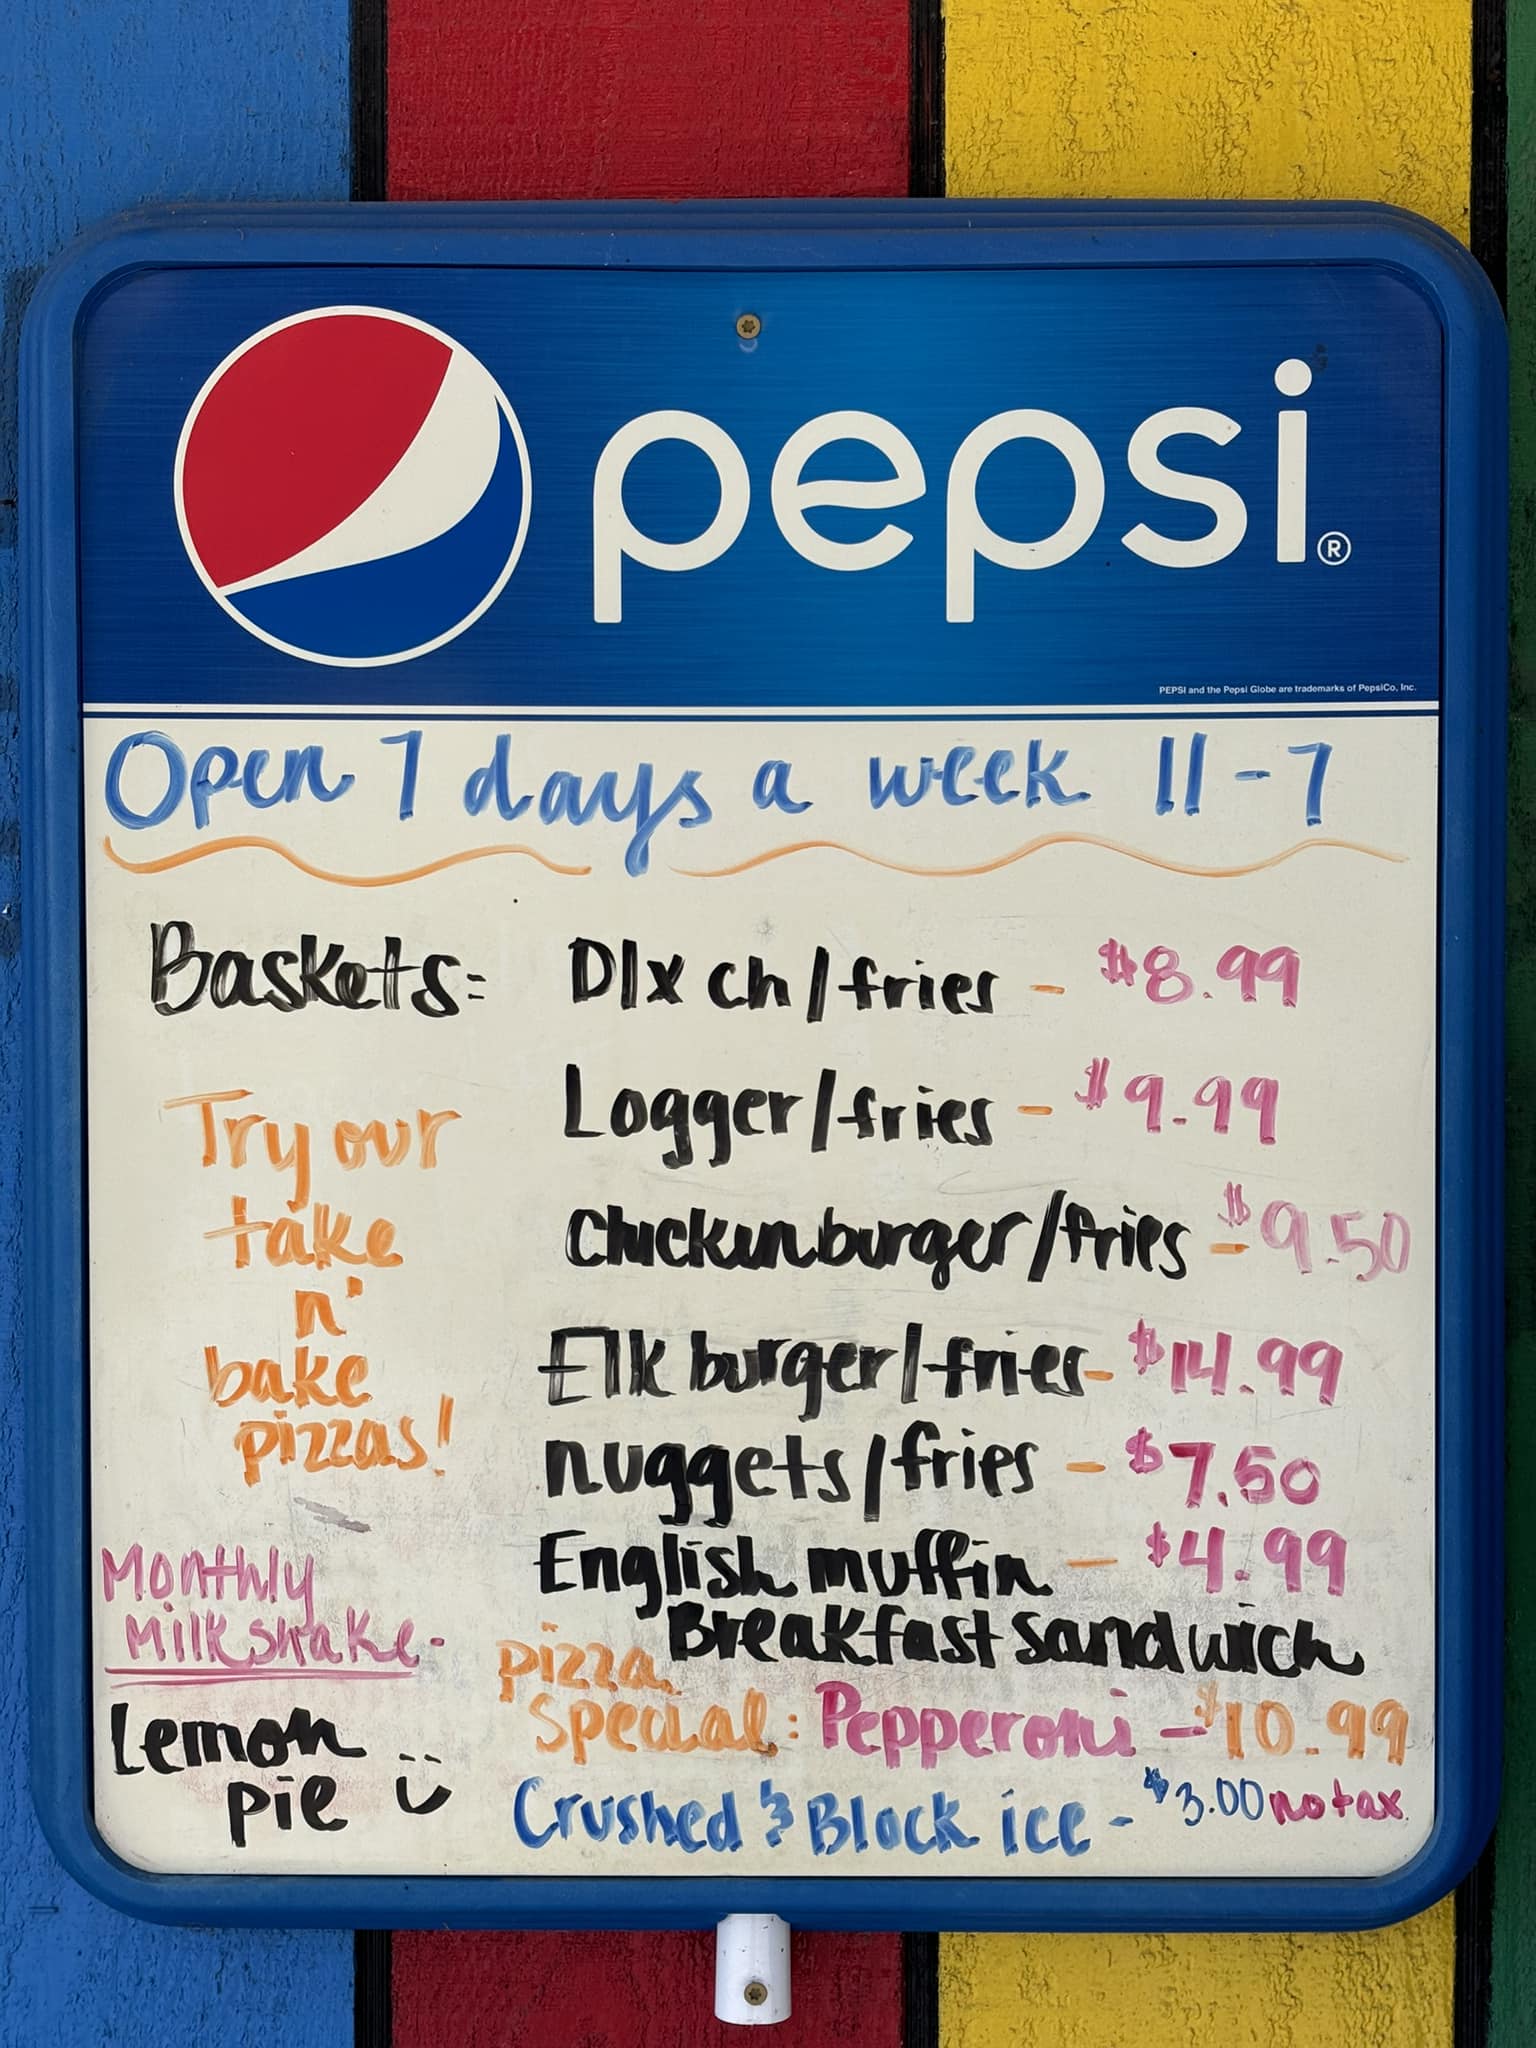 pepsi®
PEPSI and the Pepsi Globe are trademarks of PepsiCo, Inc.
Open 7 days a week 11-7
Baskets: Dlx ch/fries - $8.99
Logger/fries - $9.99
Chickenburger/fries - $9.50
Elk burger/fries - $14.99
nuggets/fries - $7.50
English muffin - $4.99
Breakfast sandwich
Try our
take
n'
bake
pizzas!
Monthly
Milkshake-
Lemon
pie
pizza
special: Pepperoni - $10.99
Crushed & Block ice - $3.00 no tax